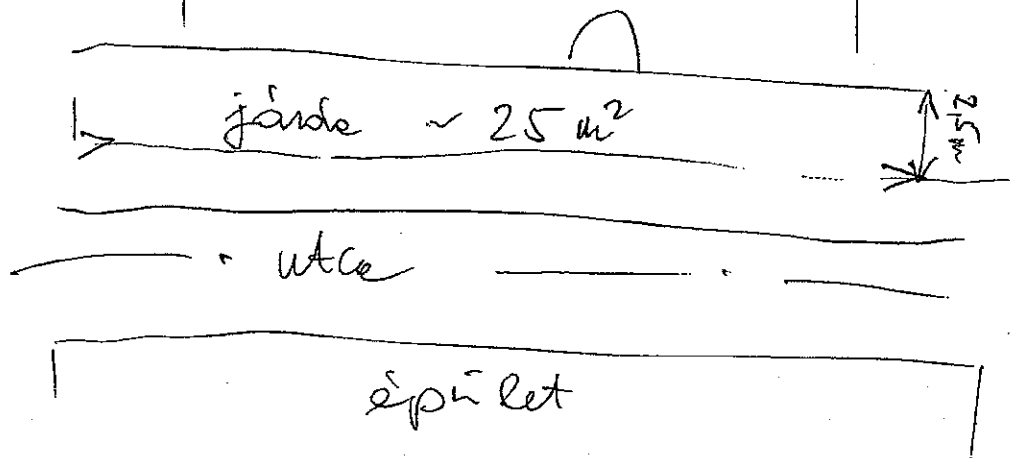 járda ~ 25 m²
2,5 m
utca
épület